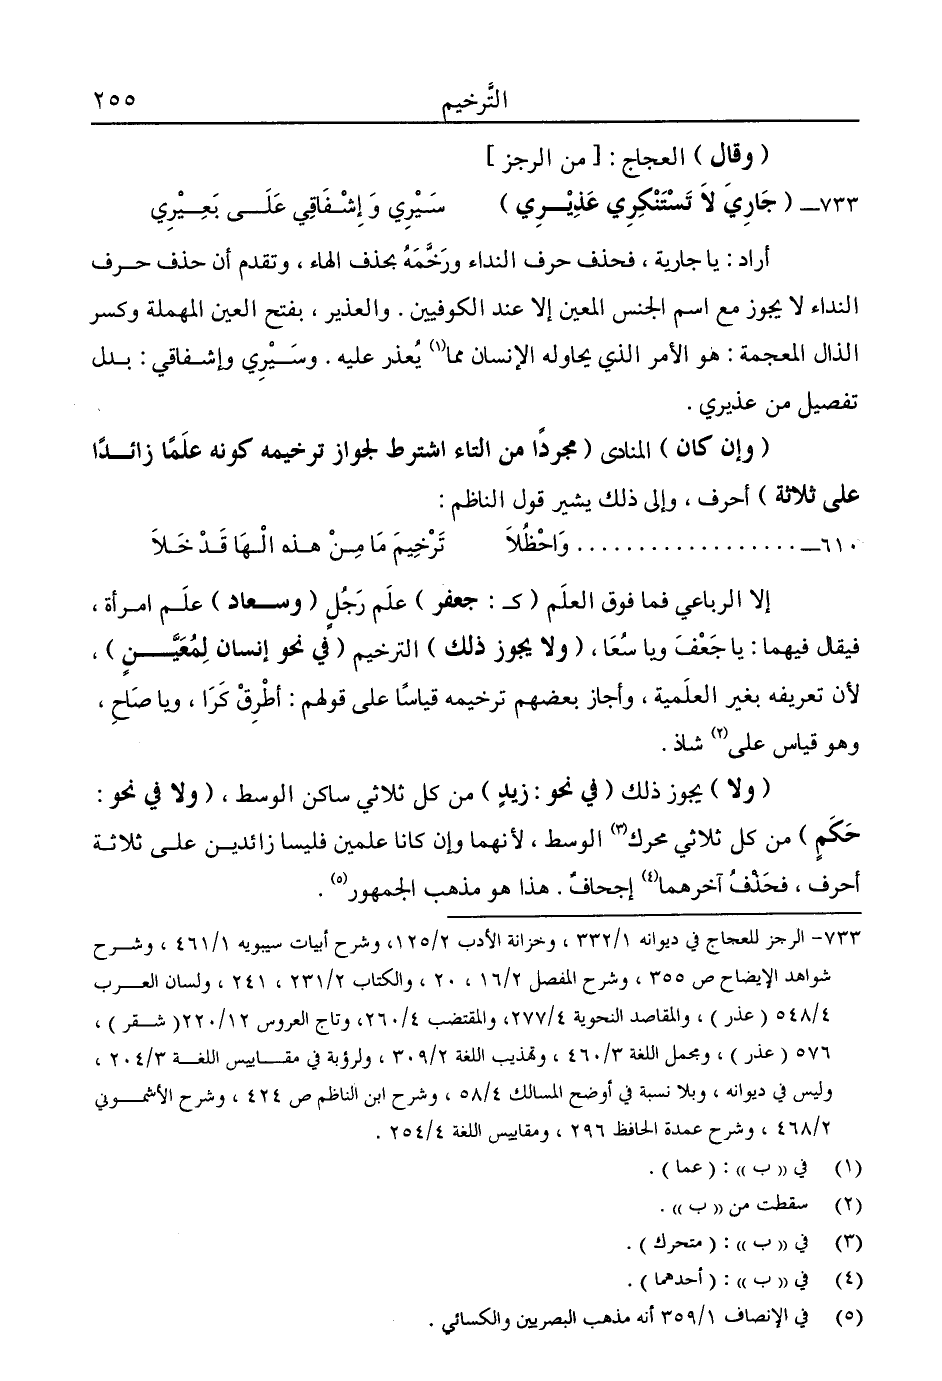 التَّرخيم ٢٥٥
( وقال ) العجاج : [ من الرجز ]
٧٣٣ـ ( جَارِيَ لاَ تَسْتَنْكِرِي عَذِيْـرِي ) سَيْرِي وَإِشْفَاقِي عَلَـى بَعِيْرِي
أراد : يا جارية ، فحذف حرف النداء ورَخَّمَهُ بحذف الهاء ، وتقدم أن حذف حـرف
النداء لا يجوز مع اسم الجنس المعين إلا عند الكوفيين . والعذير ، بفتح العين المهملة وكسر
الذال المعجمة : هو الأمر الذي يحاوله الإنسان مما(١) يُعذر عليه . وسَـيْرِي وإشـفاقي : بـدل
تفصيل من عذيري .
( وإن كان ) المنادى ( مجردًا من التاء اشترط لجواز ترخيمه كونه علَمًا زائـدًا
على ثلاثة ) أحرف ، وإلى ذلك يشير قول الناظم :
٦١٠ـ .................... وَاحْظُلاَ تَرْخِيمَ مَا مِـنْ هـذه الْـهَا قَـدْ خَـلاَ
إلا الرباعي فما فوق العلَم ( كـ : جعفر ) علَم رَجُلٍ ( وسـعاد ) علَـم امـرأة ،
فيقال فيهما : يا جَعْفَ ويا سُعَا ، ( ولا يجوز ذلك ) الترخيم ( في نحو إنسان لِمُعَيَّـنٍ ) ،
لأن تعريفه بغير العلَمية ، وأجاز بعضهم ترخيمه قياسًا على قولهم : أطْرِقْ كَرَا ، ويا صَاحِ ،
وهو قياس على(٢) شاذ .
( ولا ) يجوز ذلك ( في نحو : زيدٍ ) من كل ثلاثي ساكن الوسط ، ( ولا في نحو :
حَكَمٍ ) من كل ثلاثي محرك(٣) الوسط ، لأنهما وإن كانا علمين فليسا زائديـن علـى ثلاثـة
أحرف ، فحَذْفُ آخرهما(٤) إجحافٌ . هذا هو مذهب الجمهور(٥) .
٧٣٣- الرجز للعجاج في ديوانه ٣٣٢/١ ، وخزانة الأدب ١٢٥/٢، وشرح أبيات سيبويه ٤٦١/١ ، وشـرح
شواهد الإيضاح ص ٣٥٥ ، وشرح المفصل ١٦/٢ ، ٢٠ ، والكتاب ٢٣١/٢ ، ٢٤١ ، ولسان العـرب
٥٤٨/٤ ( عذر ) ، والمقاصد النحوية ٢٧٧/٤، والمقتضب ٢٦٠/٤، وتاج العروس ٢٢٠/١٢( شـقر ) ،
٥٧٦ ( عذر ) ، ومجمل اللغة ٤٦٠/٣ ، وتهذيب اللغة ٣٠٩/٢ ، ولرؤبة في مقـاييس اللغـة ٢٠٤/٣ ،
وليس في ديوانه ، وبلا نسبة في أوضح المسالك ٥٨/٤ ، وشرح ابن الناظم ص ٤٢٤ ، وشرح الأشمـوني
٤٦٨/٢ ، وشرح عمدة الحافظ ٢٩٦ ، ومقاييس اللغة ٢٥٤/٤ .
(١) في (( ب )) : ( عما ) .
(٢) سقطت من (( ب )) .
(٣) في (( ب )) : ( متحرك ) .
(٤) في (( ب )) : ( أحدهما ) .
(٥) في الإنصاف ٣٥٩/١ أنه مذهب البصريين والكسائي .